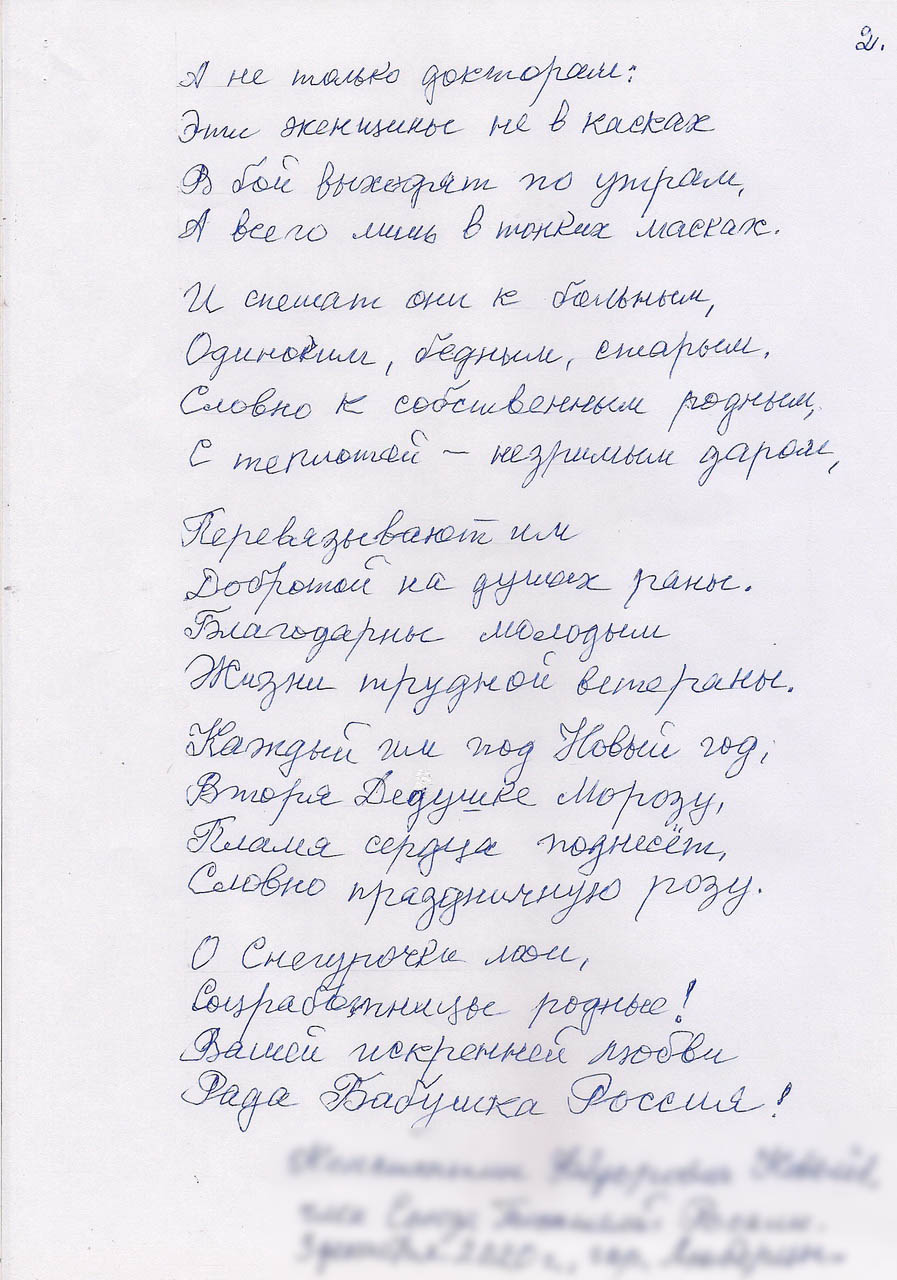 2.
А не только докторам:
Эти женщины не в касках
В бой выходят по утрам,
А всего лишь в тонких масках.
И спешат они к больным,
Одиноким, бедным, старым.
Словно к собственным родным,
С теплотой – незримым даром,
Перевязывают им
Добротой на душах раны.
Благодарны молодым
Жизни трудной ветераны.
Каждый им под Новый год,
Вторя Дедушке Морозу,
Пламя сердца поднесёт,
Словно праздничную розу.
О Снегурочки мои,
Соцработницы родные!
Вашей искренней любви
Рада Бабушка Россия!